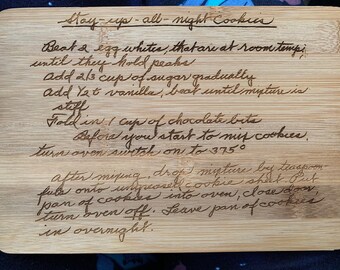 Stay-up-all-night Cookies
Beat 2 egg whites, that are at room temp,
until they hold peaks
Add 2/3 cup of sugar gradually
Add 1 at vanilla, beat until mixture is
stiff
Fold in 1 cup of chocolate bits
Before you start to mix cookies,
turn oven switch on to 375°
After mixing, drop mixture by teaspoon-
fuls onto ungreased cookie sheet Put
pan of cookies into oven, close door,
turn oven off. Leave pan of cookies
in overnight.